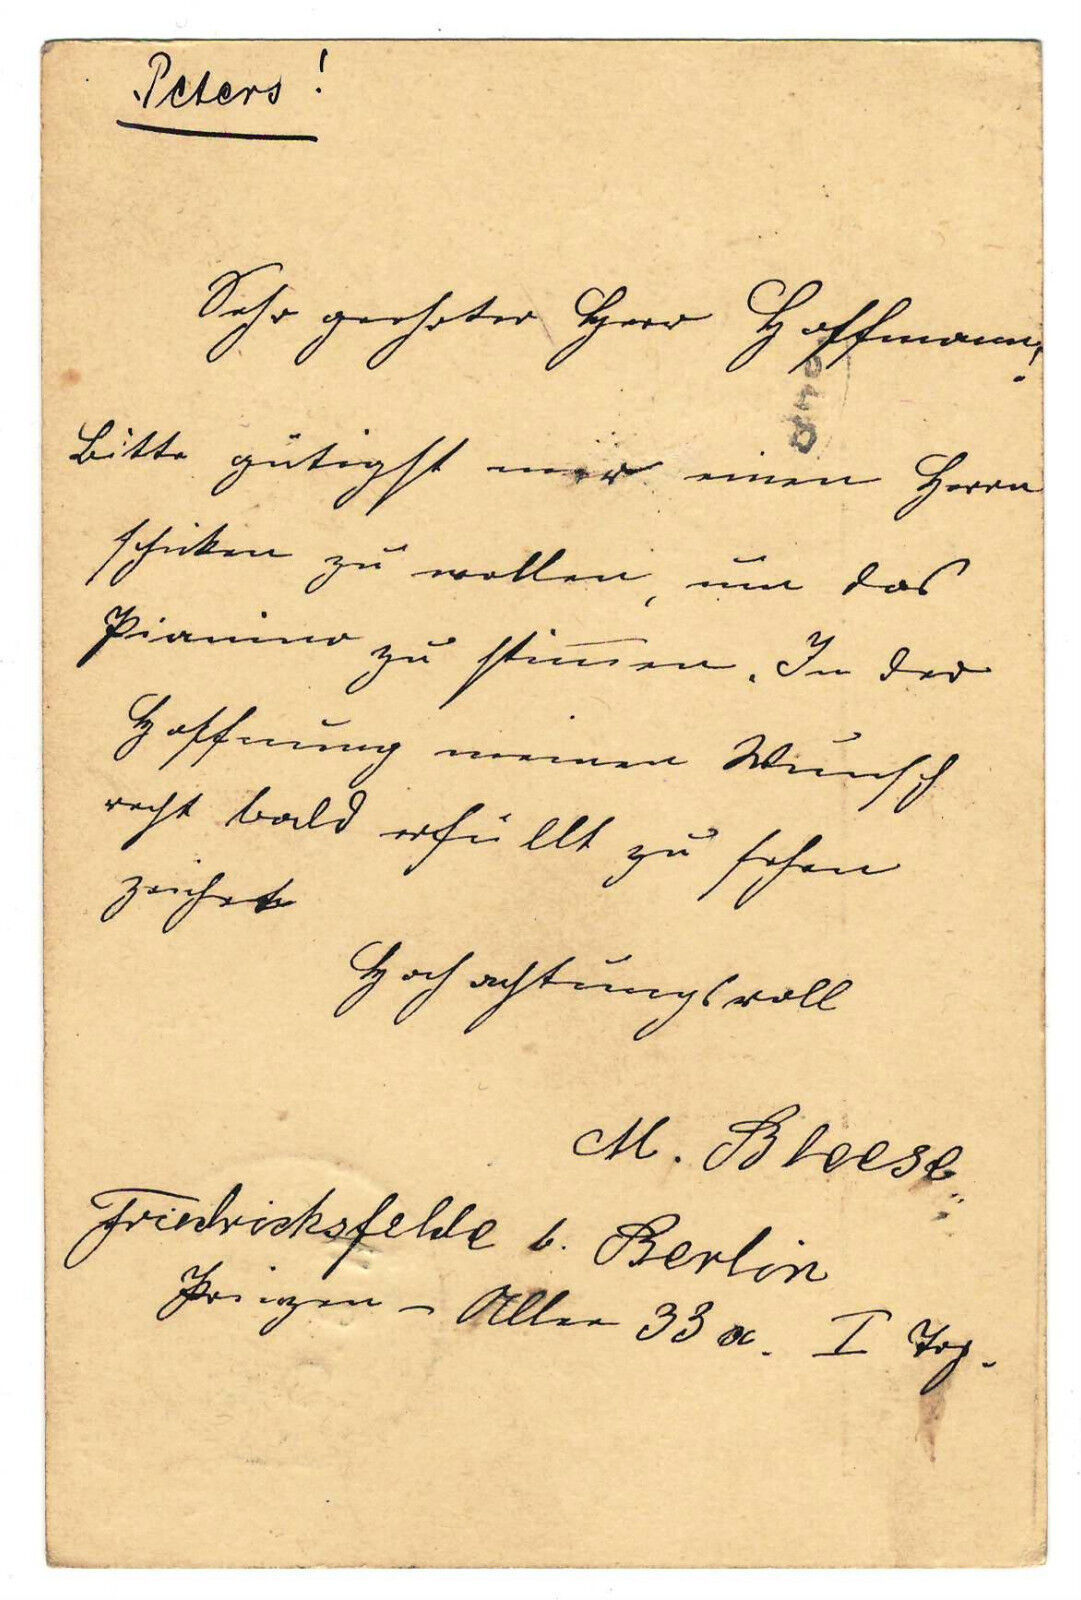 Peters!
Sehr geehrter Herr Hoffmann!
Bitte gütigst mir einen Herrn
schicken zu wollen, um das
Pianino zu stimmen. In der
Hoffnung meinen Wunsch
recht bald erfüllt zu sehen
zeichnet
Hochachtungsvoll
M. Bleese
Friedrichsfelde b. Berlin
Prinzen-Allee 33a. I Trp.